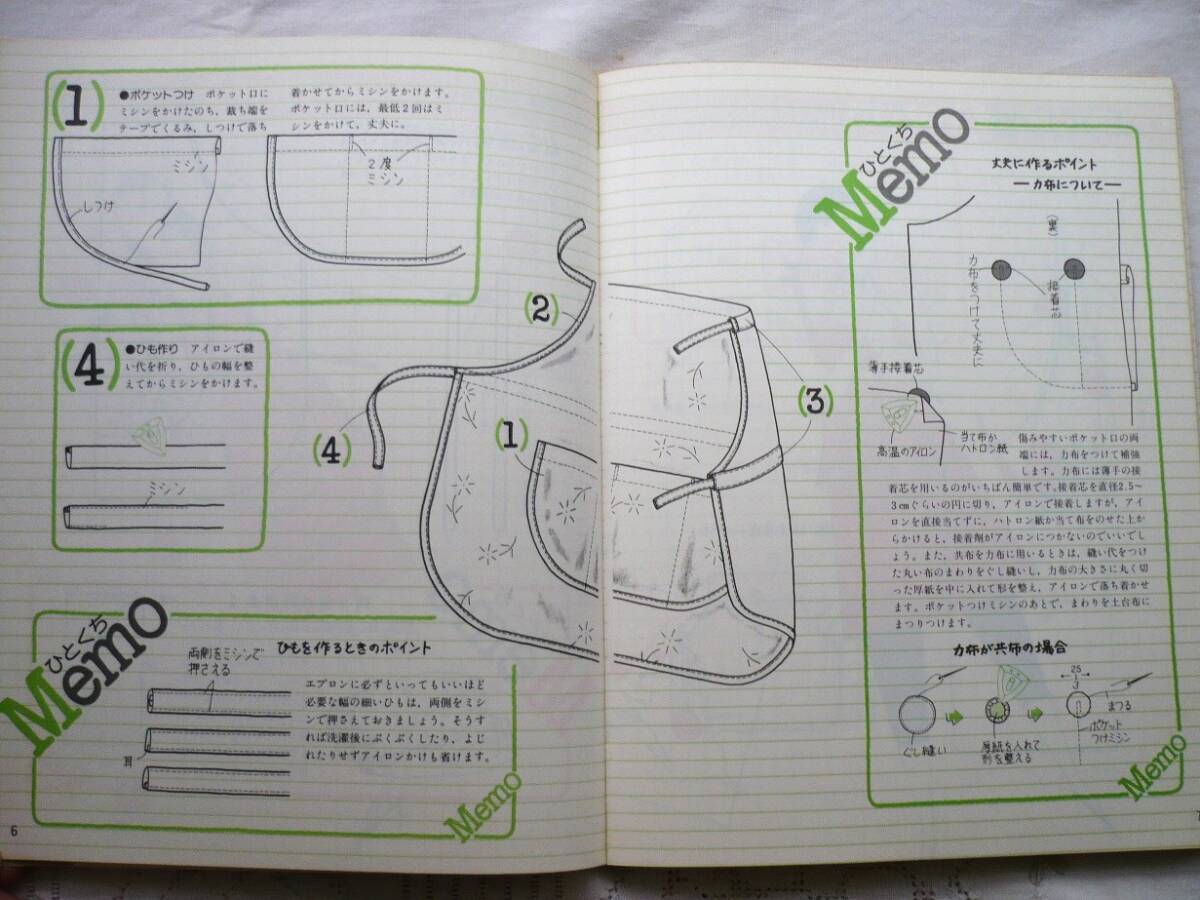 (1)
●ポケットつけ ポケット口に
ミシンをかけたのち、裁ち端を
テープでくるみ、しつけで落ち
着かせてからミシンをかけます。
ポケット口には、最低2回はミ
シンをかけて、丈夫に。
ミシン
しつけ
2度
ミシン
(4)
●ひも作り アイロンで縫
い代を折り、ひもの幅を整
えてからミシンをかけます。
ミシン
(2)
(4)
(1)
(3)
ひとくち
Memo
ひもを作るときのポイント
両側をミシンで
押さえる
耳
エプロンに必ずといってもいいほど
必要な幅の細いひもは、両側をミシ
ンで押さえておきましょう。そうす
れば洗濯後にぶくぶくしたり、よじ
れたりせずアイロンかけも省けます。
Memo
6
ひとくち
Memo
丈夫に作るポイント
―力布について―
(裏)
力布をつけて丈夫に
接着芯
薄手接着芯
高温のアイロン
当て布か
ハトロン紙
傷みやすいポケット口の両
端には、力布をつけて補強
します。力布には薄手の接
着芯を用いるのがいちばん簡単です。接着芯を直径2.5~
3cmぐらいの円に切り、アイロンで接着しますが、アイ
ロンを直接当てずに、ハトロン紙か当て布をのせた上か
らかけると、接着剤がアイロンにつかないのでいいでし
ょう。また、共布を力布に用いるときは、縫い代をつけ
た丸い布のまわりをぐし縫いし、力布の大きさに丸く切
った厚紙を中に入れて形を整え、アイロンで落ち着かせ
ます。ポケットつけミシンのあとで、まわりを土台布に
まつりつけます。
力布が共布の場合
ぐし縫い
厚紙を入れて
形を整える
2.5
まつる
ポケット
つけミシン
Memo